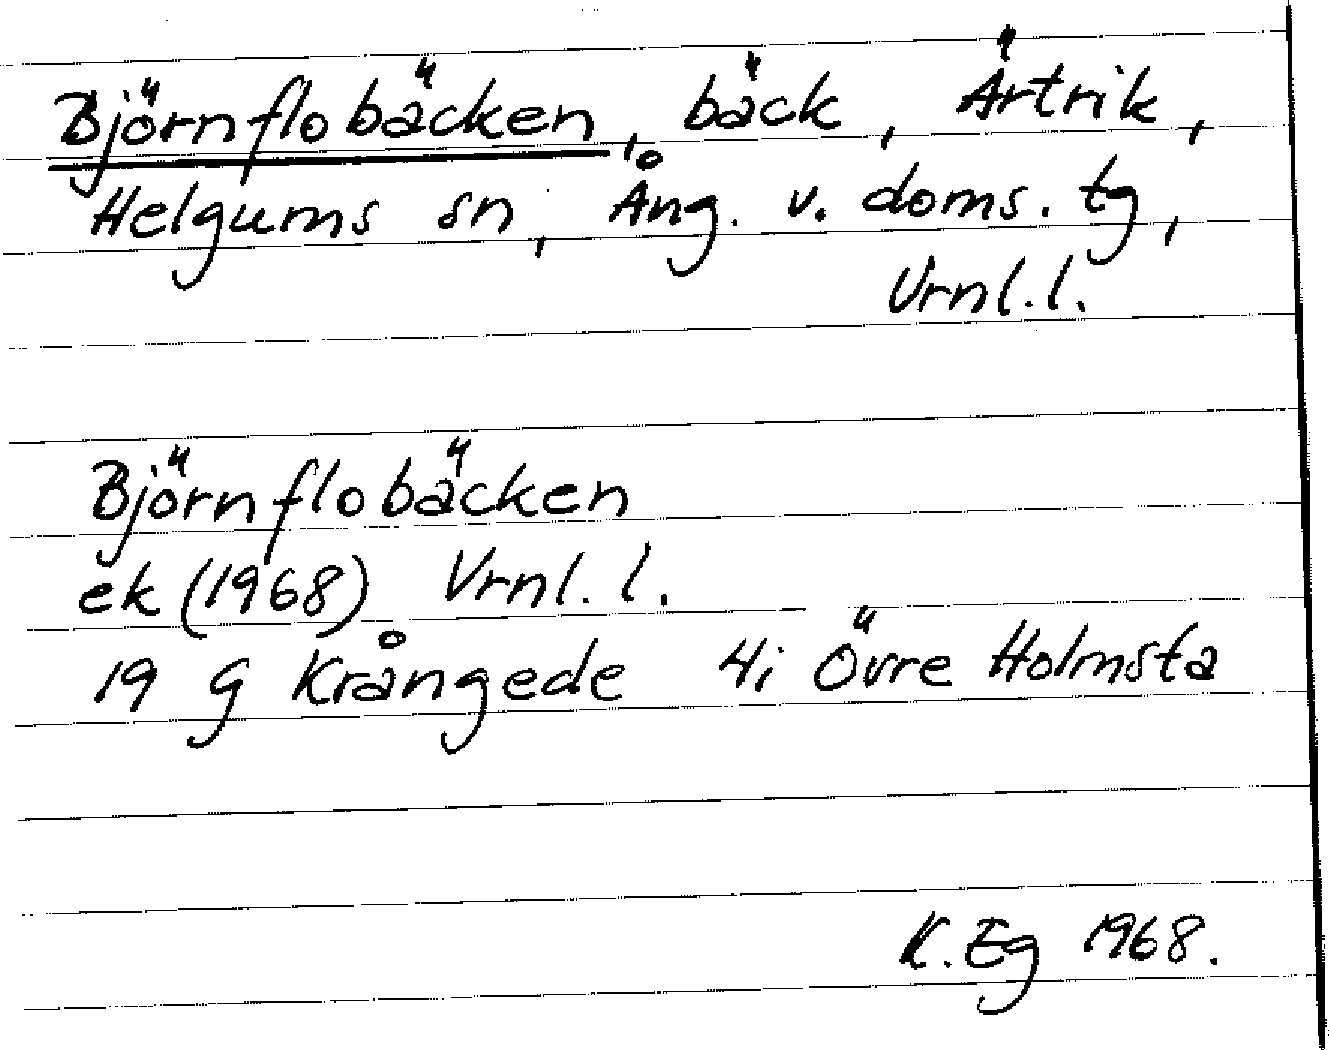 Björnflobäcken, bäck, Ärtrik,
Helgums sn, Ång. v. doms. tg,
Vrnl.l.
Björnflobäcken
ek (1968) Vrnl. l.
19 G Krångede 4i Övre Holmsta
K. Eg 1968.